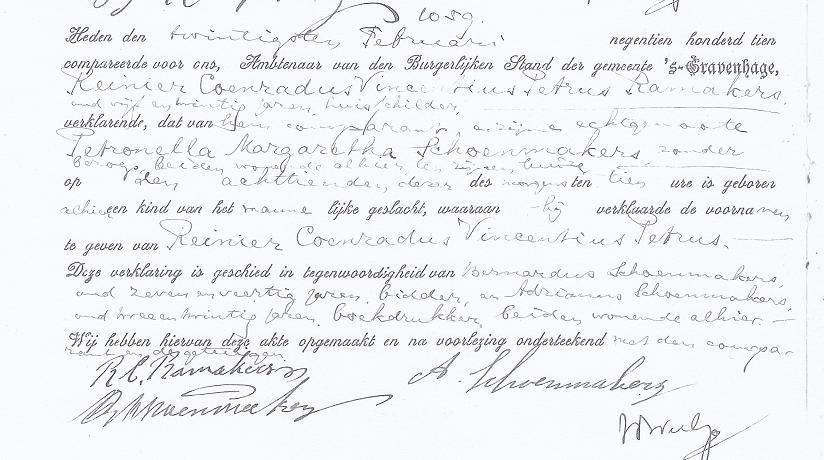 1059.
Heden den twintigsten Februari negentien honderd tien
compareerde voor ons, Ambtenaar van den Burgerlijken Stand der gemeente 's-Gravenhage,
Reinier Coenradus Vincentius Petrus Ramakers,
oud vijf en twintig jaren, huisschilder,
verklarende, dat van hem comparant en zijne echtgenoote
Petronella Margaretha Schoenmakers zonder
beroep, beiden wonende alhier, ten zijnen huize
op den achttienden dezer des morgens ten tien ure is geboren
alhier een kind van het manne lijke geslacht, waaraan hij verklaarde de voorna men
te geven van Reinier Coenradus Vincentius Petrus.
Deze verklaring is geschied in tegenwoordigheid van Bernardus Schoenmakers,
oud zeven en veertig jaren, bidder, en Adrianus Schoenmakers,
oud twee en twintig jaren, boekdrukker, beiden wonende alhier.
Wij hebben hiervan deze akte opgemaakt en na voorlezing onderteekend met den compa-
rant en de getuigen.
R.C. Ramakers A. Schoenmakers
Schoenmakers